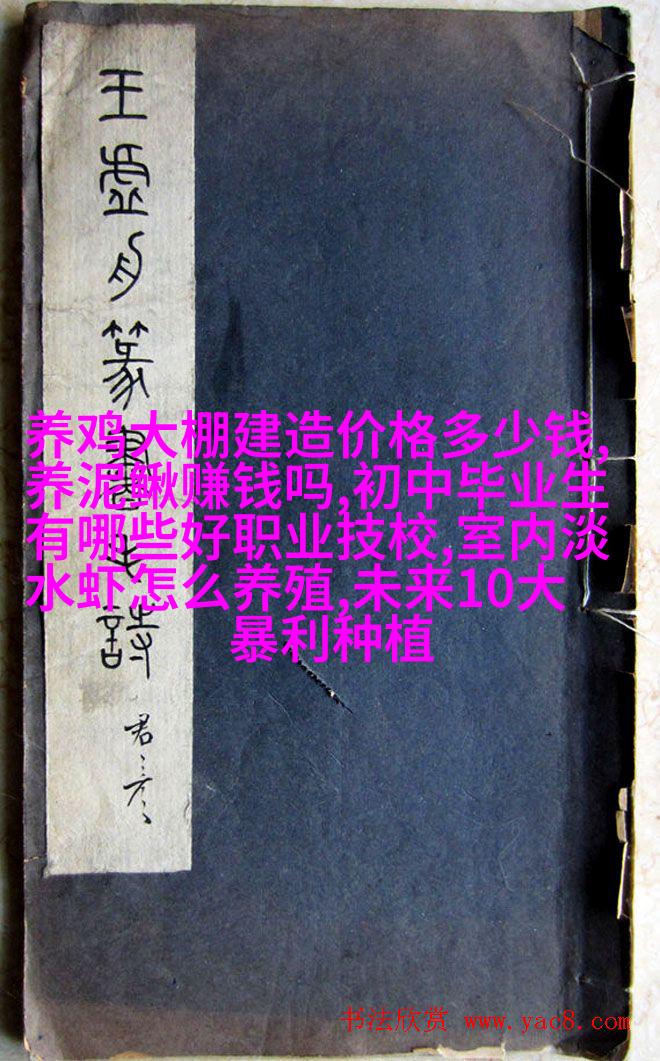 王虚舟篆書詩
君彦
养鸡大棚建造价格多少钱,
养泥鳅赚钱吗,初中毕业生
有哪些好职业技校,室内淡
水虾怎么养殖,未来10大
暴利种植
书法欣赏 www.yac8.com